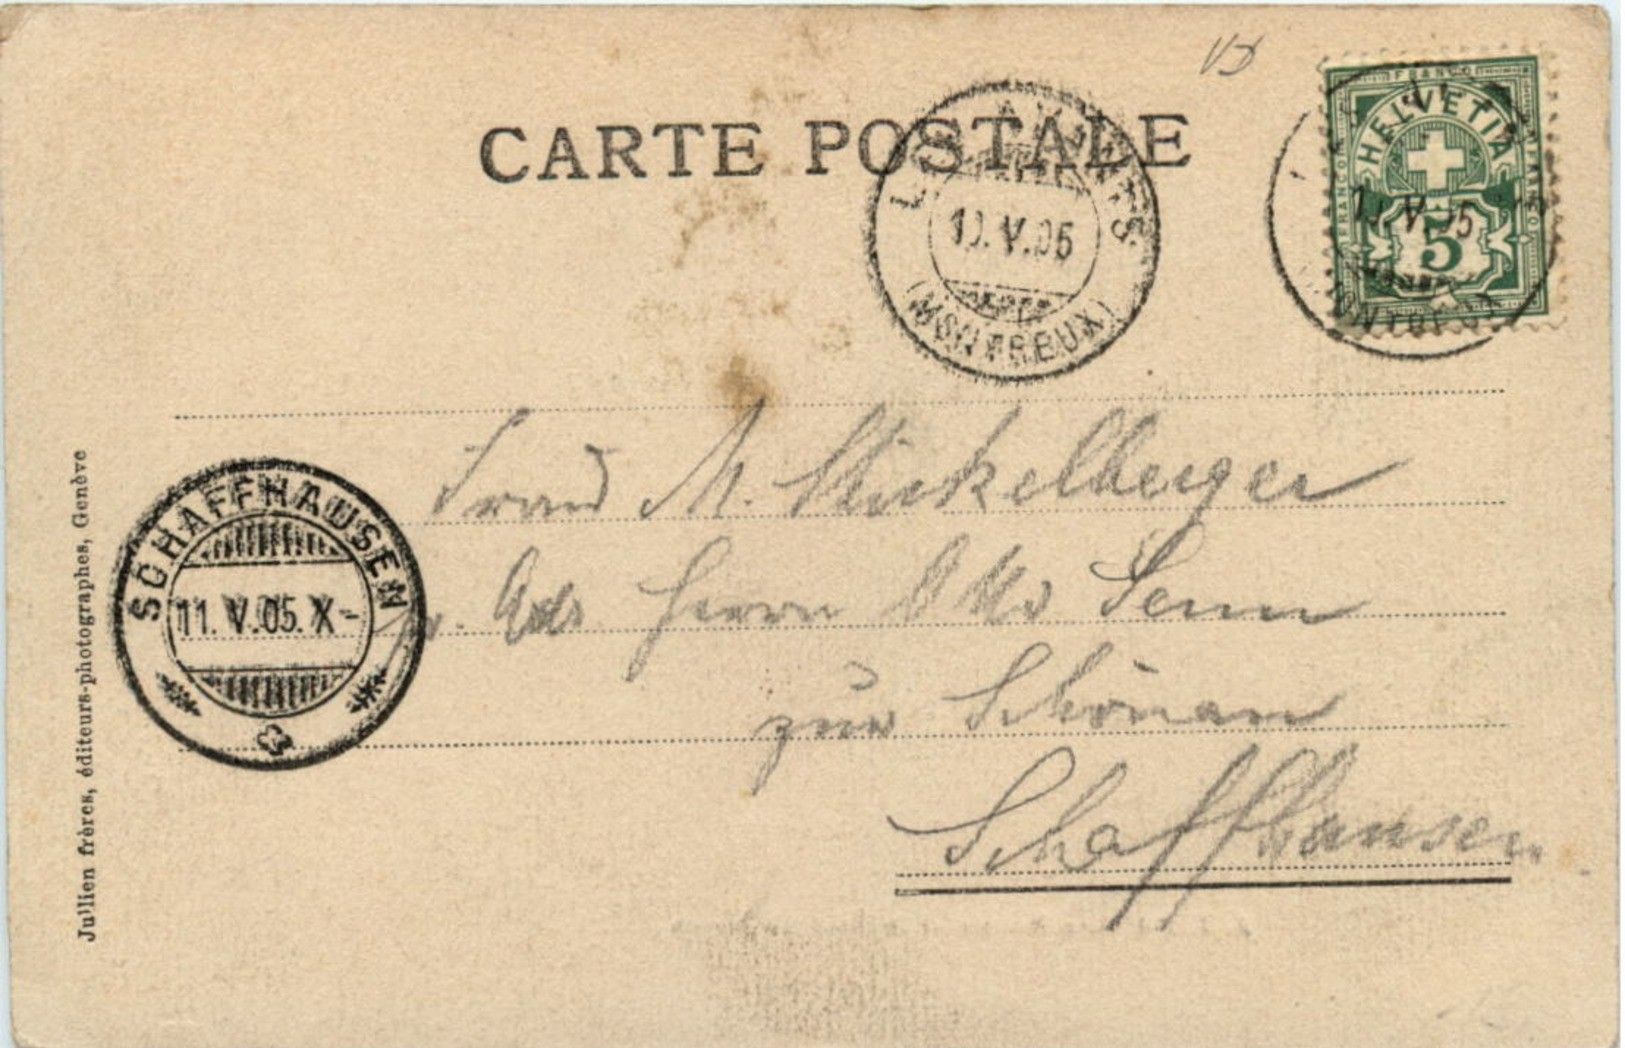 VD
CARTE POSTALE
FRANCO
HELVETIA
FRANCO
FRANCO
5
10.V.05
(MONTREUX)
10.V.05
Frau M. Stickelberger
Ads Herrn Otto Senn
zur Schönau
Schaffhausen
SCHAFFHAUSEN
11.V.05.X-
Jullien frères, éditeurs-photographes, Genève